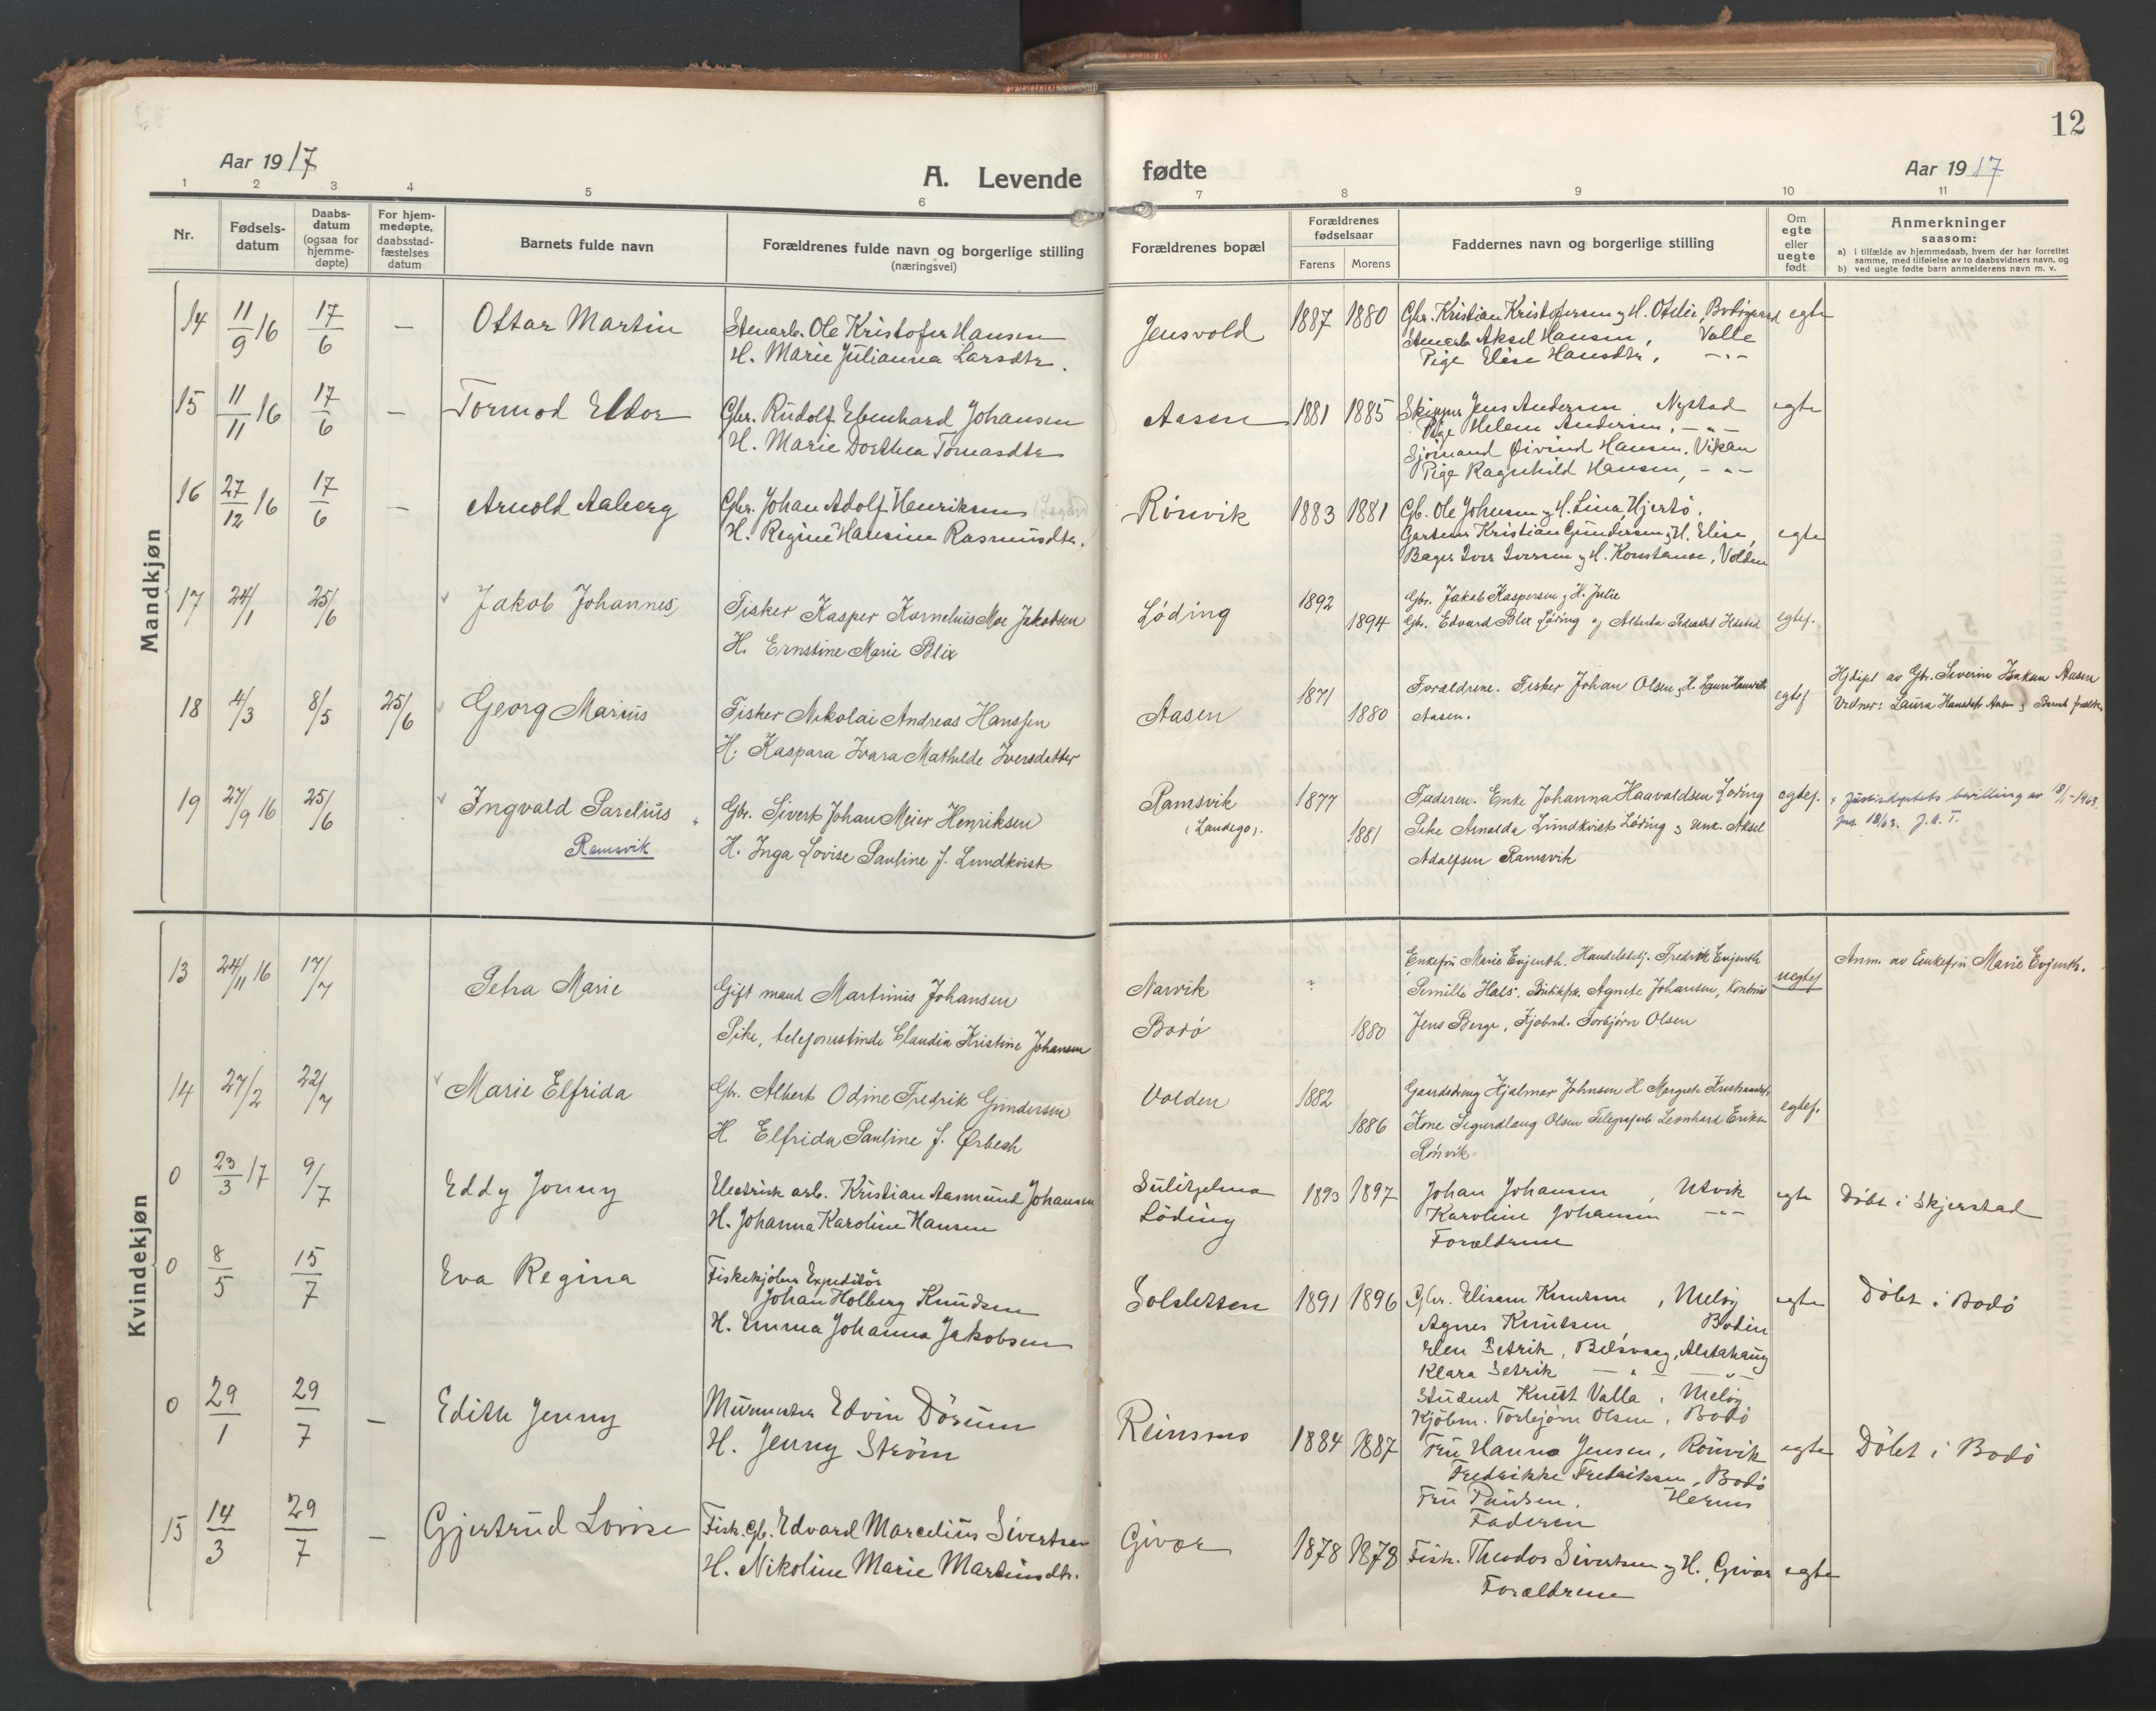 12
Aar 1917
A. Levende
fødte
Aar 1917
1 2 3 4 5 6 7 8 9 10 11
Nr.
Fødsels-
datum
Daabs-
datum
(ogsaa for
hjemme-
døpte)
For hjem-
medøpte,
daabsstad-
fæstelses
datum
Barnets fulde navn
Forældrenes fulde navn og borgerlige stilling
(næringsvei)
Forældrenes bopæl
Forældrenes
fødselsaar
Farens Morens
Faddernes navn og borgerlige stilling
Om
egte
eller
uegte
født
Anmerkninger
saasom:
a) i tilfælde av hjemmedaab, hvem der har forrettet
samme, med tilføielse av to daabsvidners navn, og
b) ved uegte fødte barn anmelderens navn m. v.
Mandkjøn
14 11/9 16 17/6 — Ottar Martin
Stenarb. Ole Kristofer Hansen
H. Marie Julianna Larsdtr.
Jensvold 1887 1880
Gbr. Kristian Kristofersen og H. Otelie, Bodøgaard
Stenarb Aksel Hansen, Valle
Pige Elise Hansdtr, -"-
egte
15 11/11 16 17/6 — Tormod Eldor
Gbr. Rudolf Ebenhard Johansen
H. Marie Dorthea Tomasdtr
Aasen 1881 1885
Skipper Jens Andersen, Nystad
Pige Helene Andersen, -"-
Sjømand Øivind Hansen, Vikan
Pige Ragnhild Hansen, -"-
egte
16 27/12 16 17/6 — Arnold Aaberg
Gbr. Johan Adolf Henriksen
H. Regine Hansine Rasmusdtr.
Rønvik 1883 1881
Gb. Ole Johnsen og H. Lina, Hjertø.
Gartner Kristian Gundersen og H. Elise,
Bager Iver Iversen og H. Konstanse, Volden
egte
17 24/1 25/6 Jakob Johannes
Fisker Kasper Kornelius Moe Jakobsen
H. Ernstine Marie Blix
Løding 1892 1894
Gbr. Jakob Kaspersen og H. Julie
Gbr. Edvard Blix Løding og Alberta
egtef.
18 4/3 8/5 25/6 Georg Marius
Fisker Nikolai Andreas Hanssen
H. Kaspara Ivara Mathilde Iversdatter
Aasen 1871 1880
Forældrene. Fisker Johan Olsen og H. Laura
Aasen.
egtef
Hjdøpt av Gbr. Severin Aasen
Vidner: Laura Hansdtr Aasen og Bernt
19 27/9 16 25/6 Ingvald Parelius
Ramsvik
Gbr. Sivert Johan Meier Henriksen
H. Inga Lovise Pauline f. Lundkvist
Ramsvik
(Landego).
1877 1881
Faderen. Enke Johanna Haavaldsen Løding
Pike Arnolda Lundkvist Løding og Unk. Aksel
Adolfsen Ramsvik
egtef.
x Justisdeptets bevilling av 18/1-1963.
Jnr. 18/63. J.K.T.
Kvindekjøn
13 24/11 16 17/7 Petra Marie
Gift mand Martinus Johansen
Pike, telefonistinde Claudia Kristine Johansen
Narvik
Bodø
? 1880
Enkefru Marie Evjenth. Handelsbetj. Fredrik Evjenth
Pernille Hals. Agnete Johansen,
Jens Berge, Kjøbmd. Torbjørn Olsen
uegtef
Anm. av Enkefru Marie Evjenth.
14 27/2 22/7 Marie Elfrida
Gbr. Albert Odine Fredrik Gundersen
H. Elfrida Pauline f. Ørbech
Volden 1882 1886
Gaardsdreng Hjalmar Johnsen H Margrete
Kone Sigurdlaug Olsen Leonhard Eriksen
Rønvik
egtef.
0 23/3 17 9/7 Eddy Jonny
Electrisk arb. Kristian Aasmund Johansen
H. Johanna Karoline Hansen
Sulitjelma
Løding
1893 1897
Johan Johansen, Utvik
Karoline Johansen -"-
Forældrene
egte
Døbt i Skjerstad
0 8/5 15/7 Eva Regina
Fiskekjøber Expeditør
Johan Holberg Knudsen
H. Emma Johanna Jakobsen
Solsletten 1891 1896
Gbr. Elisam Knutsen, Meløy
Agnes Knutsen, Bodin
Elen Setrik, Belsvaag, Alstahaug
Klara Setrik -"- -"-
Student Knut Valla, Meløy
Kjøbm. Torbjørn Olsen, Bodø
egte
Døbt i Bodø
0 29/1 29/7 — Edith Jenny
Murmester Edvin Dørum
H. Jenny Strøm
Reinsmo 1884 1887
Fru Hanna Jensen, Rønvik
Fredrikke Fredriksen, Bodø
Fru Paulsen, Hernes
Faderen
egte
Døbt i Bodø
15 14/3 29/7 — Gjertrud Lovise
Fisk. gb. Edvard Marcelius Sivertsen
H. Nikoline Marie Martinsdtr.
Givær 1878 1878
Fisk. Theodor Sivertsen og H. Givær
Forældrene
egte